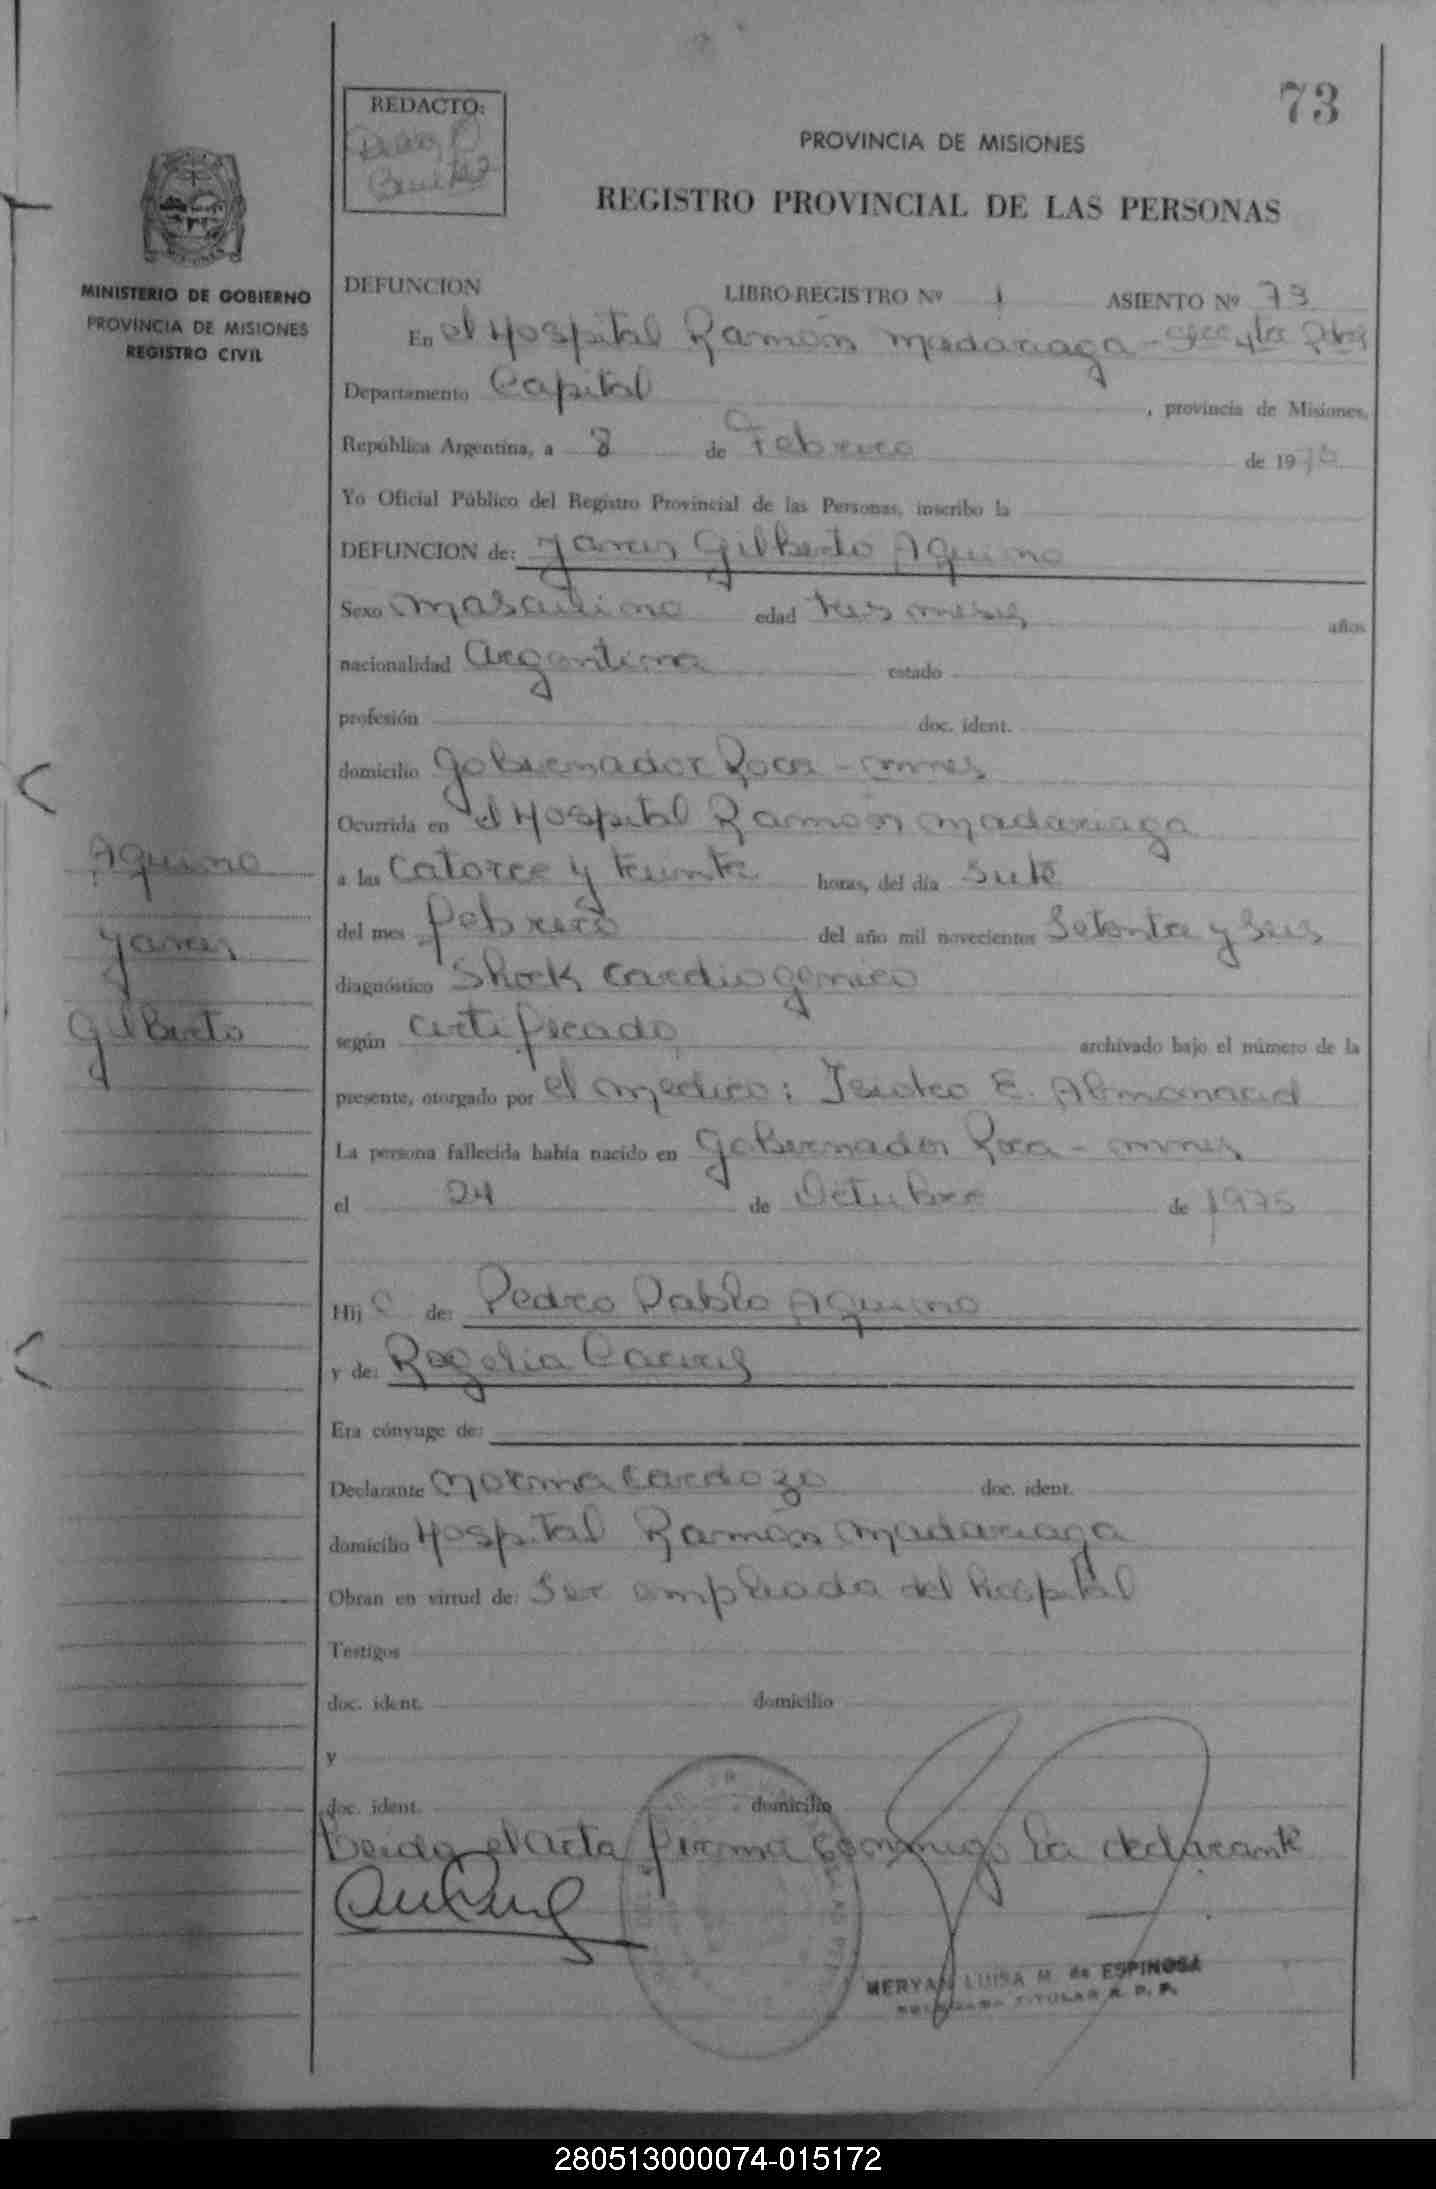 73
REDACTO:
Benitez
PROVINCIA DE MISIONES
REGISTRO PROVINCIAL DE LAS PERSONAS
MINISTERIO DE GOBIERNO
PROVINCIA DE MISIONES
REGISTRO CIVIL
DEFUNCION LIBRO-REGISTRO Nº 1 ASIENTO Nº 73
En el Hospital Ramón Madariaga -
Departamento Capital , provincia de Misiones,
República Argentina, a 8 de Febrero de 19
Yo Oficial Público del Registro Provincial de las Personas, inscribo la
DEFUNCION de: Gilberto Aquino
Sexo Masculino edad tres meses años
nacionalidad Argentina estado
profesión doc. ident.
domicilio Gobernador Roca - mnes
Ocurrida en el Hospital Ramón Madariaga
a las Catorce y treinta horas, del día siete
del mes febrero del año mil novecientos Setenta y Seis
diagnóstico Shock Cardiogenico
según certificado archivado bajo el número de la
presente, otorgado por el medico: E.
La persona fallecida había nacido en Gobernador Roca - mnes
el 24 de Octubre de 1975
Hij o de: Pedro Pablo Aquino
y de: Rogelia
Era cónyuge de:
Declarante Norma Cardozo doc. ident.
domicilio Hospital Ramón Madariaga
Obran en virtud de: Ser empleada del hospital
Testigos
doc. ident. domicilio
y
doc. ident. domicilio
Leida el acta firma conmigo la declarante
MERYAN LUISA M. de ESPINOSA
TITULAR R. P. P.
Aquino
Gilberto
280513000074-015172